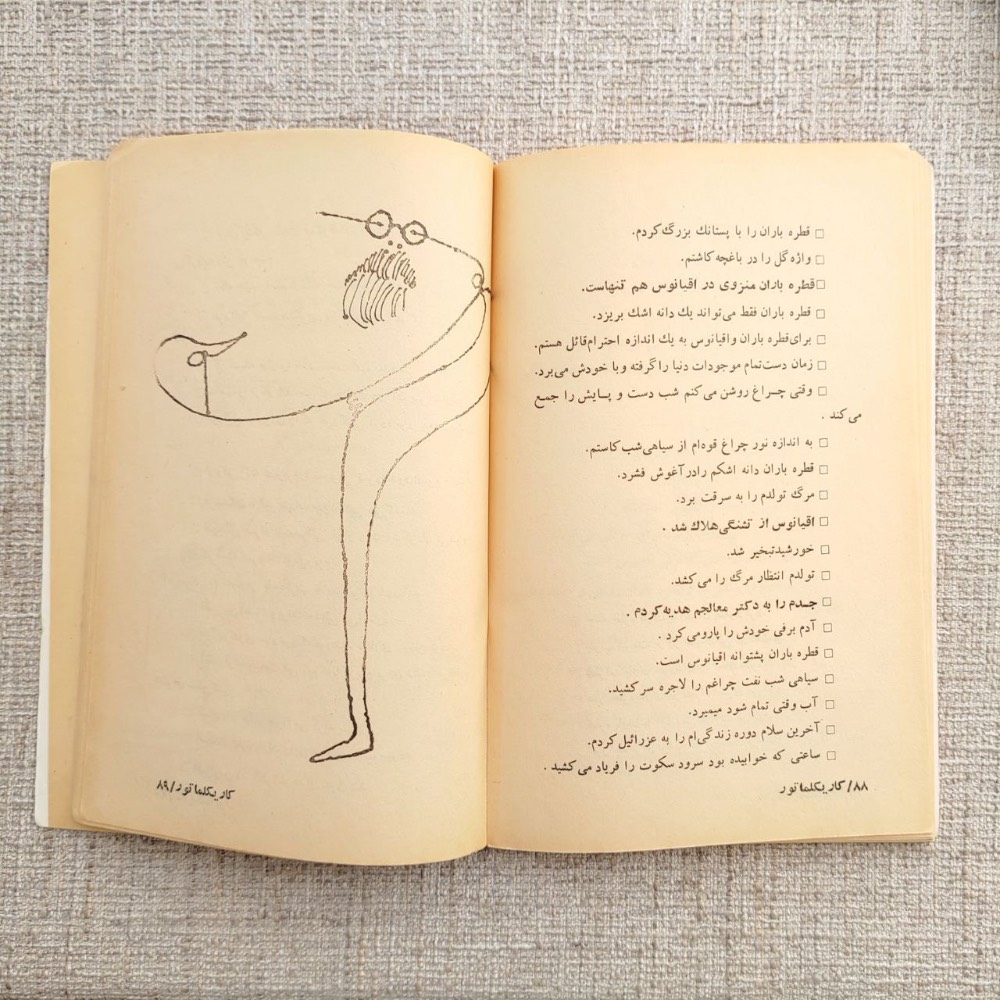 □ قطره باران را با پستانك بزرگ كردم.
□ واژه گل را در باغچه كاشتم.
□ قطره باران منزوی در اقیانوس هم تنهاست.
□ قطره باران فقط می‌تواند یك دانه اشك بریزد.
□ برای قطره باران و اقیانوس به یك اندازه احترام قائل هستم.
□ زمان دست تمام موجودات دنیا را گرفته و با خودش می‌برد.
□ وقتی چـراغ روشن می‌كنم شب دست و پـایش را جمـع
می‌كند .
□ به اندازه نور چراغ قوه‌ام از سیاهی شب كاستم.
□ قطره باران دانه اشكم را در آغوش فشرد.
□ مرگ تولدم را به سرقت برد.
□ اقیانوس از تشنگی هلاك شد .
□ خورشید تبخیر شد.
□ تولدم انتظار مرگ را می‌كشد.
□ جـدم را به دكتر معالجم هدیه كردم .
□ آدم برفی خودش را پارو می‌كرد .
□ قطره باران پشتوانه اقیانوس است.
□ سیاهی شب نفت چراغم را لاجره سر كشید.
□ آب وقتی تمام شود میمیرد.
□ آخرین سلام دوره زندگی‌ام را به عزرائیل كردم.
□ ساعتی كه خوابیده بود سرود سكوت را فریاد می‌كشید .
۸۸/ كاریكلماتور
كاریكلماتور /۸۹